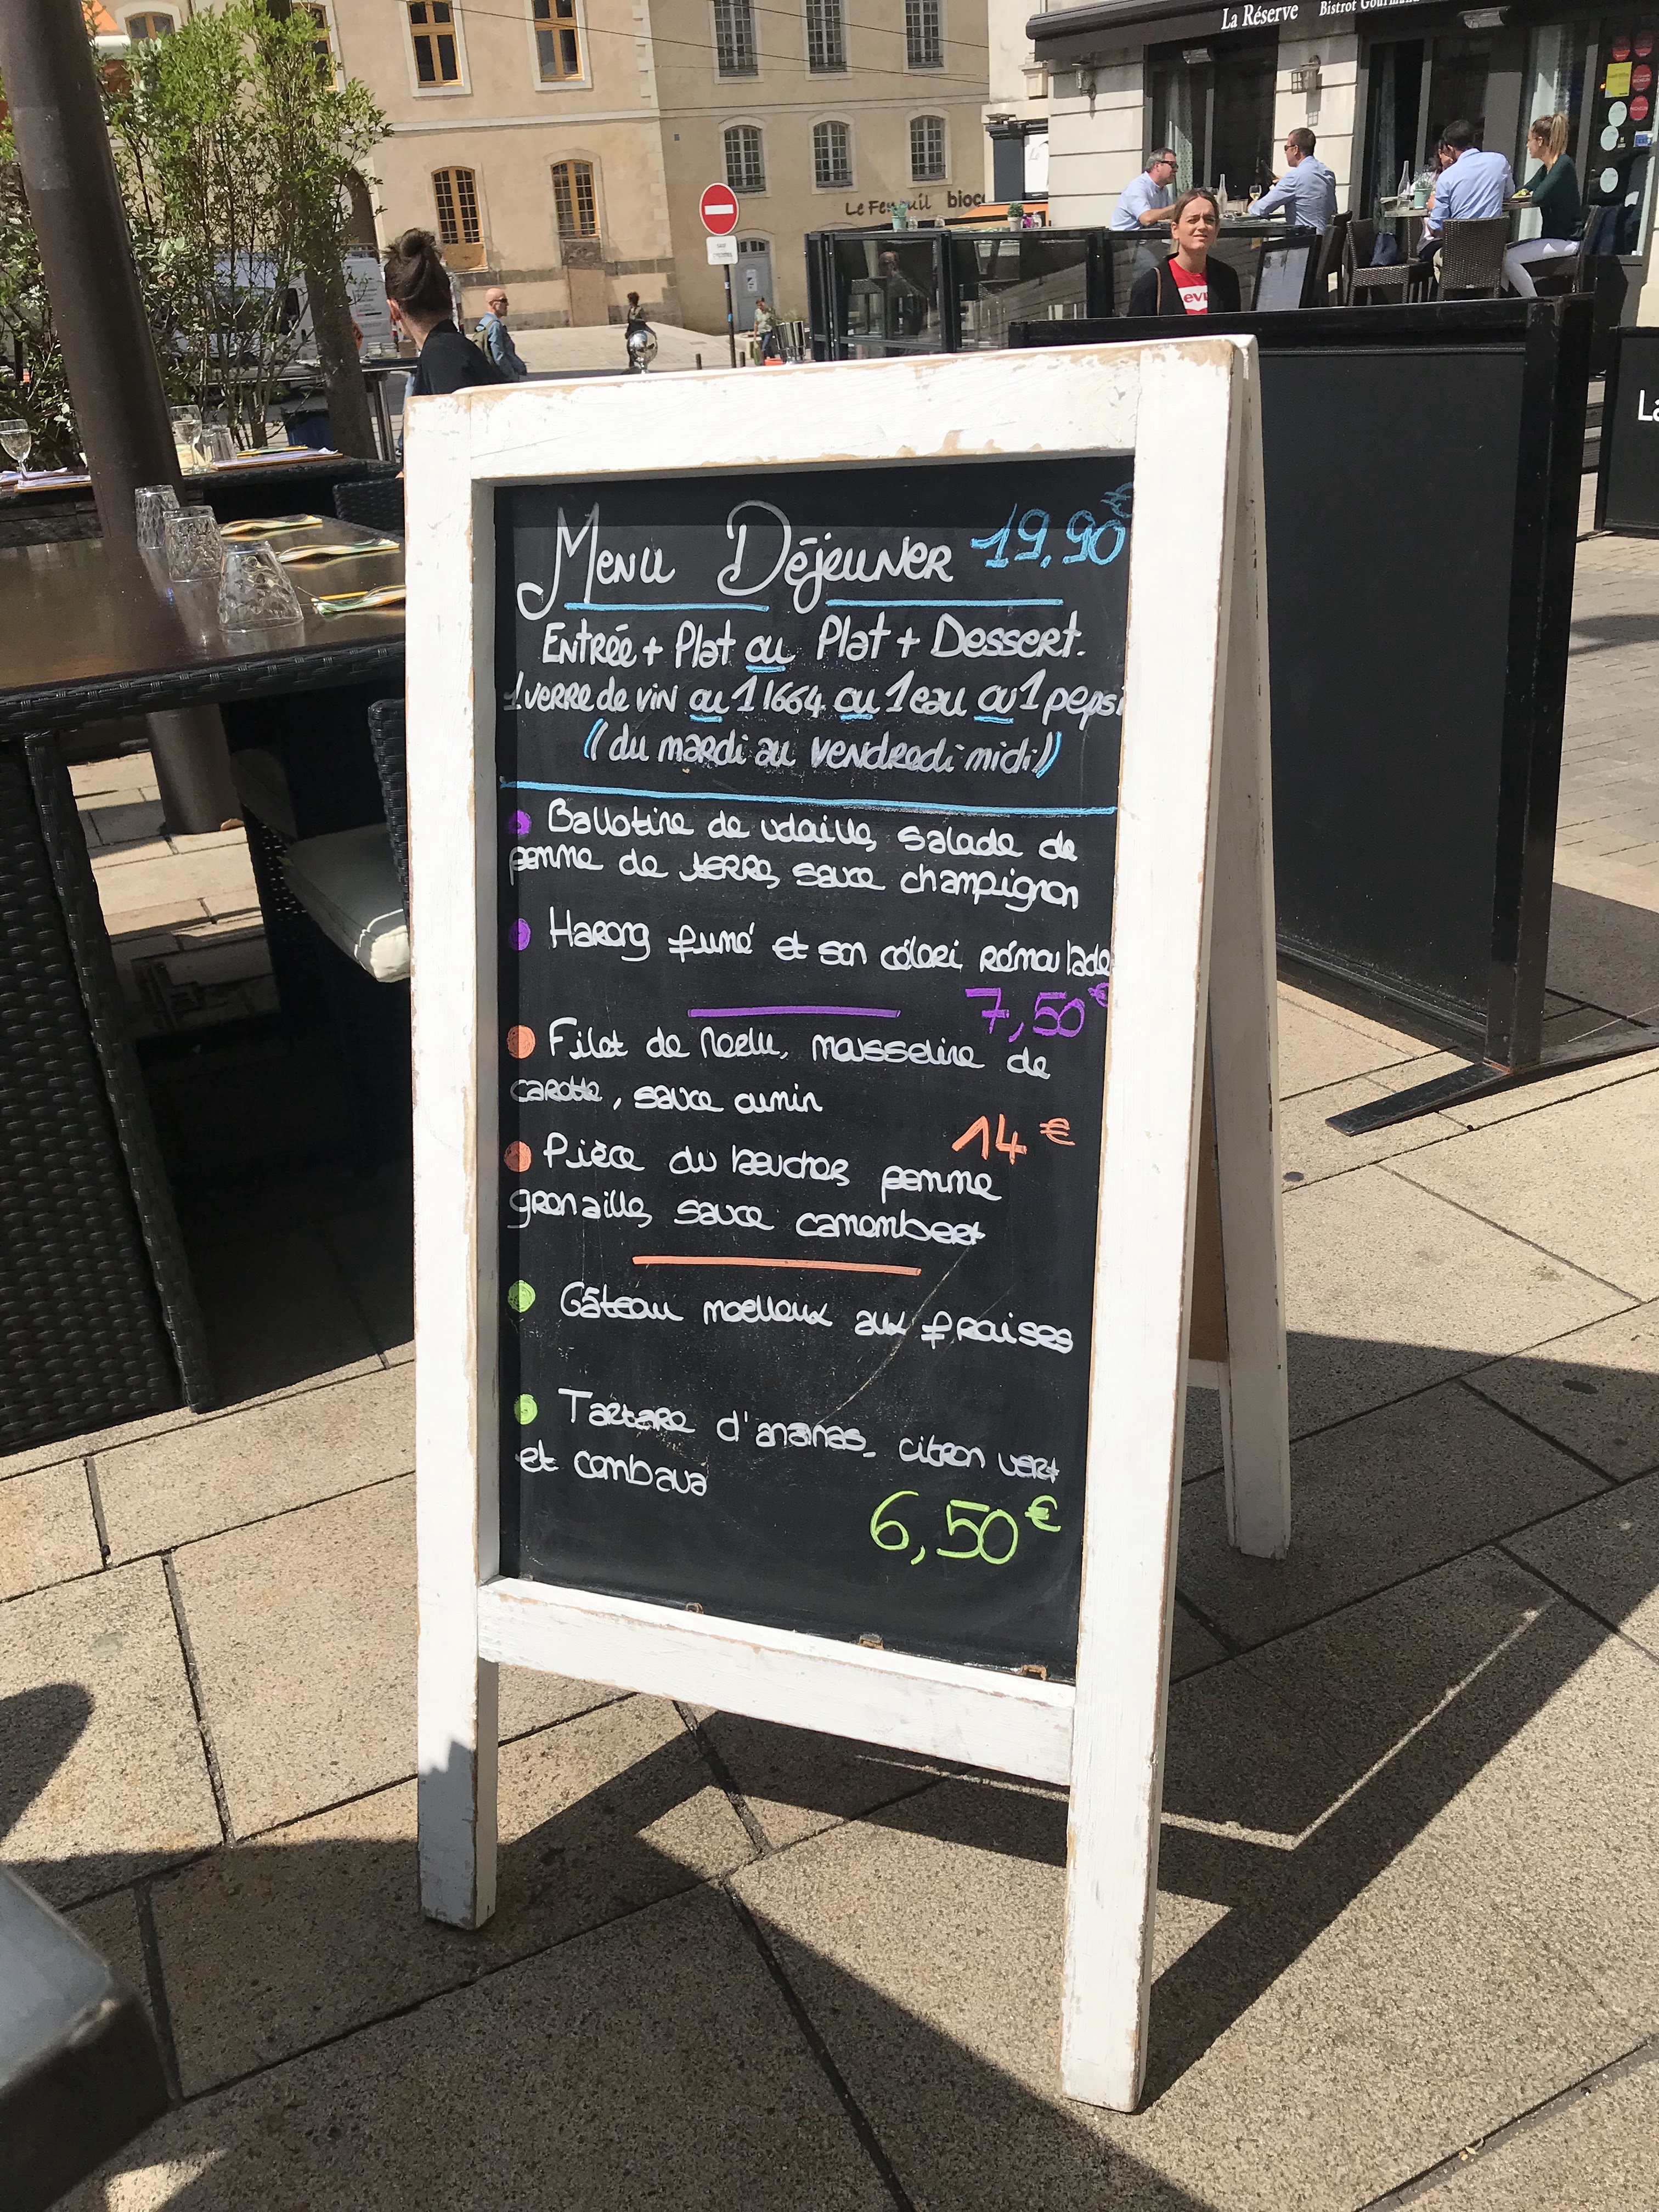 La Réserve Bistrot Gourmand
Le Fenouil bioc
LEVI
La
Menu Déjeuner 19.90€
Entrée + Plat ou Plat + Dessert.
1 verre de vin ou 1 1664 ou 1 eau ou 1 pepsi
(du mardi au vendredi midi)
Ballotine de volaille, salade de
pomme de terre, sauce champignon
Hareng fumé et son céleri rémoulade
7,50€
Filet de merlu, mousseline de
carotte, sauce cumin
14€
Pièce du boucher, pomme
grenaille, sauce camembert
Gâteau moelleux aux fraises
Tartare d'ananas, citron vert
et combava
6,50€